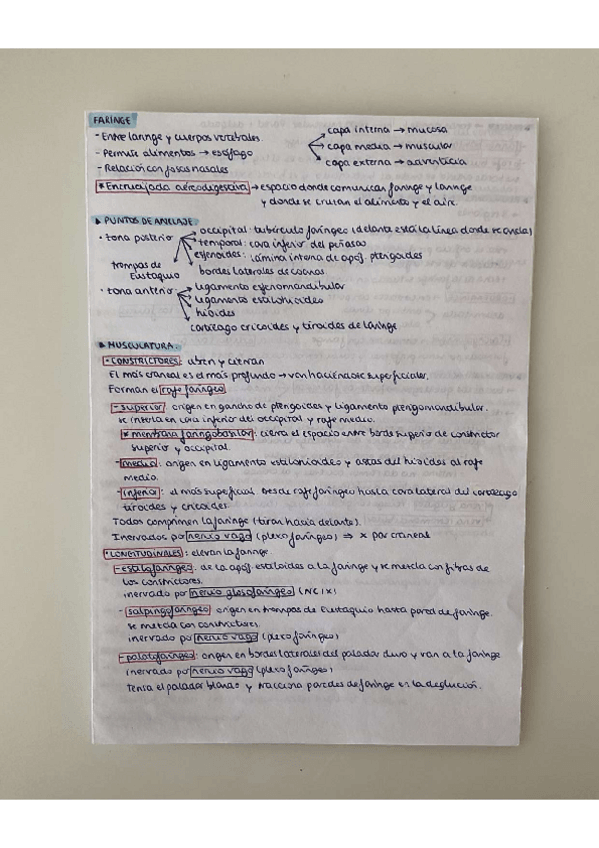 FARINGE
- Entre laringe y cuerpos vertebrales.
- Permite alimentos → esófago
- Relación con fosas nasales
capa interna → mucosa
capa media → muscular
capa externa → adventicia
* Encrucijada aéreodigestiva → espacio donde comunican faringe y laringe
y donde se cruzan el alimento y el aire.
▲ PUNTOS DE ANCLAJE
· zona posterior
occipital: tubérculo faríngeo (delante está la línea donde se ancla)
temporal: cara inferior del peñasco
esfenoides: lámina interna de apóf. pterigoides
bordes laterales de coanas
trompas de
Eustaquio
· zona anterior:
ligamento esfenomandibular
ligamento estilohioideo
hioides
cartílago cricoides y tiroides de laringe
▲ MUSCULATURA.
· CONSTRICTORES: abren y cierran
El más craneal es el más profundo → van haciéndose superficiales.
Forman el rafe faríngeo
- superior: origen en gancho de pterigoides y ligamento pterigomandibular.
se inserta en cara inferior del occipital y rafe medio.
* membrana faringobasilar: cierra el espacio entre borde superior de constrictor
superior y occipital.
- medio: origen en ligamento estilohioideo y astas del hioides al rafe
medio.
- inferior: el más superficial. Desde rafe faríngeo hasta cara lateral del cartílago
tiroides y cricoides
Todos comprimen la faringe (tiran hacia delante).
Inervados por nervio vago (plexo faríngeo) ⇒ X par craneal
· LONGITUDINALES: elevan la faringe.
- estilofaríngeo: de la apóf. estiloides a la faringe y se mezcla con fibras de
los constrictores.
inervado por nervio glosofaríngeo (NC IX)
- salpingofaríngeo: origen en trompas de Eustaquio hasta pared de faringe.
se mezcla con constrictores.
inervado por nervio vago (plexo faríngeo)
- palatofaríngeo: origen en bordes laterales del paladar duro y van a la faringe
inervado por nervio vago (plexo faríngeo)
Tensa el paladar blando y tracciona paredes de faringe en la deglución.